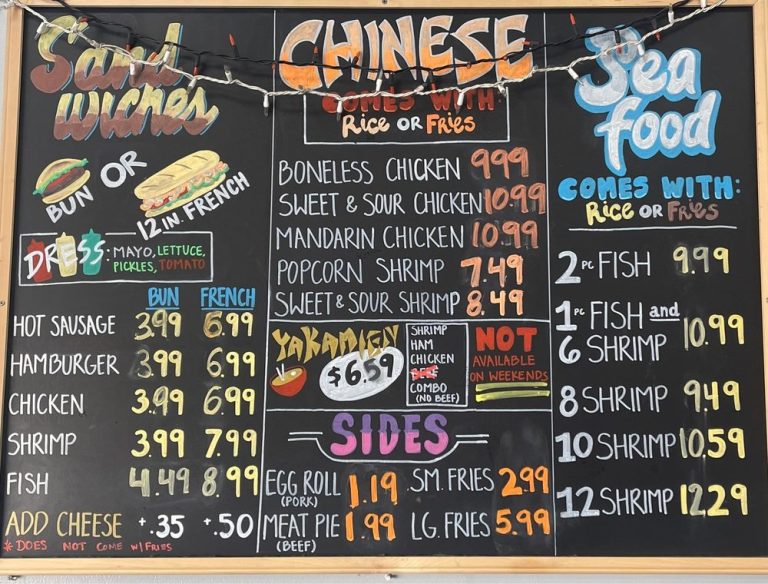 Sandwiches
BUN OR 12 IN FRENCH
DRESS: MAYO, LETTUCE,
PICKLES, TOMATO
BUN FRENCH
HOT SAUSAGE 3.99 6.99
HAMBURGER 3.99 6.99
CHICKEN 3.99 6.99
SHRIMP 3.99 7.99
FISH 4.49 8.99
ADD CHEESE +.35 +.50
* DOES NOT COME W/FRIES
CHINESE
COMES WITH:
Rice OR Fries
BONELESS CHICKEN 9.99
SWEET & SOUR CHICKEN 10.99
MANDARIN CHICKEN 10.99
POPCORN SHRIMP 7.49
SWEET & SOUR SHRIMP 8.49
YAKAMIEN
$6.59
SHRIMP
HAM
CHICKEN
BEEF
COMBO
(NO BEEF)
NOT
AVAILABLE
ON WEEKENDS
SIDES
EGG ROLL 1.19
(PORK)
MEAT PIE 1.99
(BEEF)
SM. FRIES 2.99
LG. FRIES 5.99
Sea
food
COMES WITH:
Rice OR Fries
2 PC FISH 9.99
1 PC FISH and
6 SHRIMP 10.99
8 SHRIMP 9.49
10 SHRIMP 10.59
12 SHRIMP 12.29